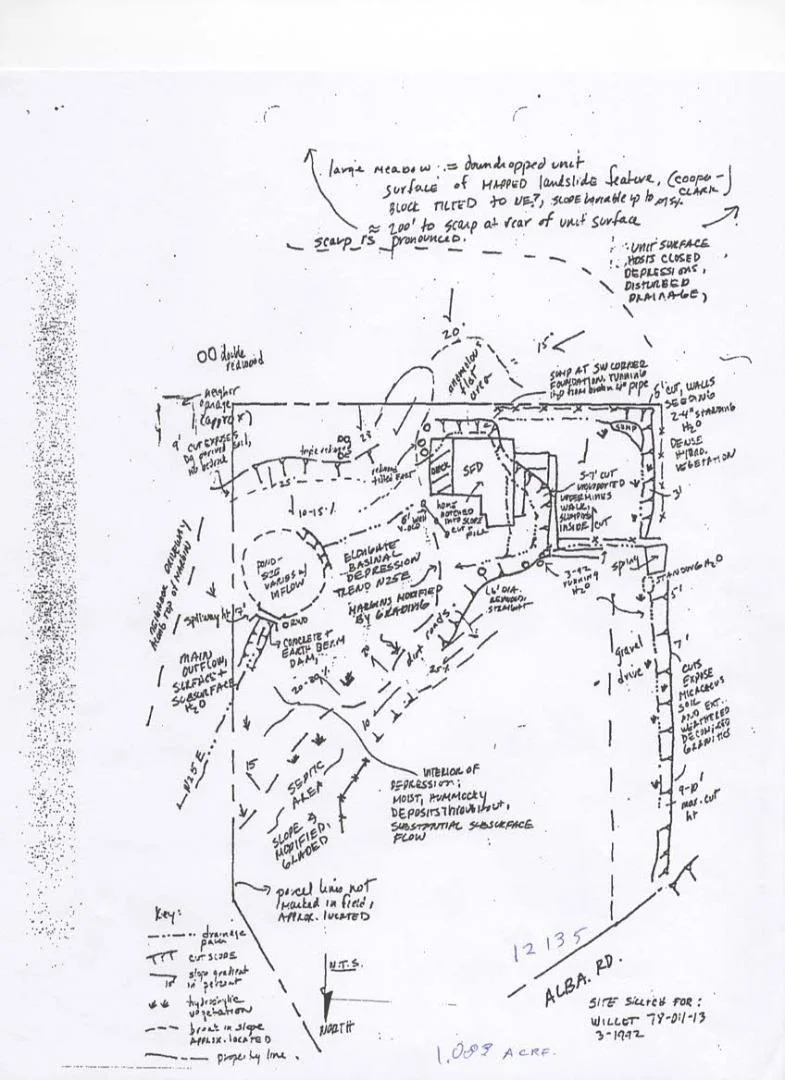 large meadow = downdropped unit
surface of MAPPED landslide feature, (COOPER-
CLARK)
BLOCK TILTED TO NE?, SLOPE variable up to
≈ 200' to scarp at rear of unit surface
scarp is pronounced.
UNIT SURFACE
HOSTS CLOSED
DEPRESSIONS,
DISTURBED
DRAINAGE,
double
redwood
20'
15'
anomalous
flat
area
SUMP AT SW CORNER
FOUNDATION, RUNNING
H2O from broken 4" pipe
5' CUT, WALLS
SEEDING
2-4" STANDING
H2O
DENSE
HYDRO.
VEGETATION
SUMP
3'
neighbor
garage
(approx)
9' CUT EXPOSES
Dg derived soil,
no bedrock
triple redwood
28
redwood
tilted East
25'
DECK
SFD
5-7' CUT
UNSUPPORTED
UNDERMINES
WALK,
SLUMPING
INSIDE CUT
10-15%
home
notched
into slope
cut +
fill
6' well
POND-
SIZE
VARIES W/
INFLOW
ELONGATE
BASINAL
DEPRESSION
TREND N25E
MARGINS MODIFIED
BY GRADING
3-92
RUNNING
H2O
spring
STANDING H2O
5'
1.6' DIA.
REDWOOD,
STRAIGHT
NEIGHBOR DRIVEWAY
ALONG TOP OF MARGIN
spillway ht
RWD
CONCRETE +
EARTH BERM
DAM,
MAIN
OUTFLOW,
SURFACE +
SUBSURFACE
H2O
dirt roads
25%
20-30%
gravel
drive
7'
CUTS
EXPOSE
MICACEOUS
SOIL
AND EXT.
WEATHERED
DECOMPOSED
GRANITICS
10
15
N25E
SEPTIC
AREA
SLOPE
MODIFIED,
GRADED
INTERIOR OF
DEPRESSION;
MOIST, HUMMOCKY
DEPOSITS THROUGHOUT,
SUBSTANTIAL SUBSURFACE
FLOW
9-10'
max. cut
ht
parcel lines not
marked in field,
APPROX. LOCATED
Key:
drainage
path
CUT SLOPE
slope gradient
15 in percent
hydrophytic
vegetation
break in slope
APPROX. LOCATED
property line.
N.T.S.
NORTH
12135
ALBA. RD.
SITE SKETCH FOR:
WILLET 78-011-13
3-1992
1.089 ACRE.